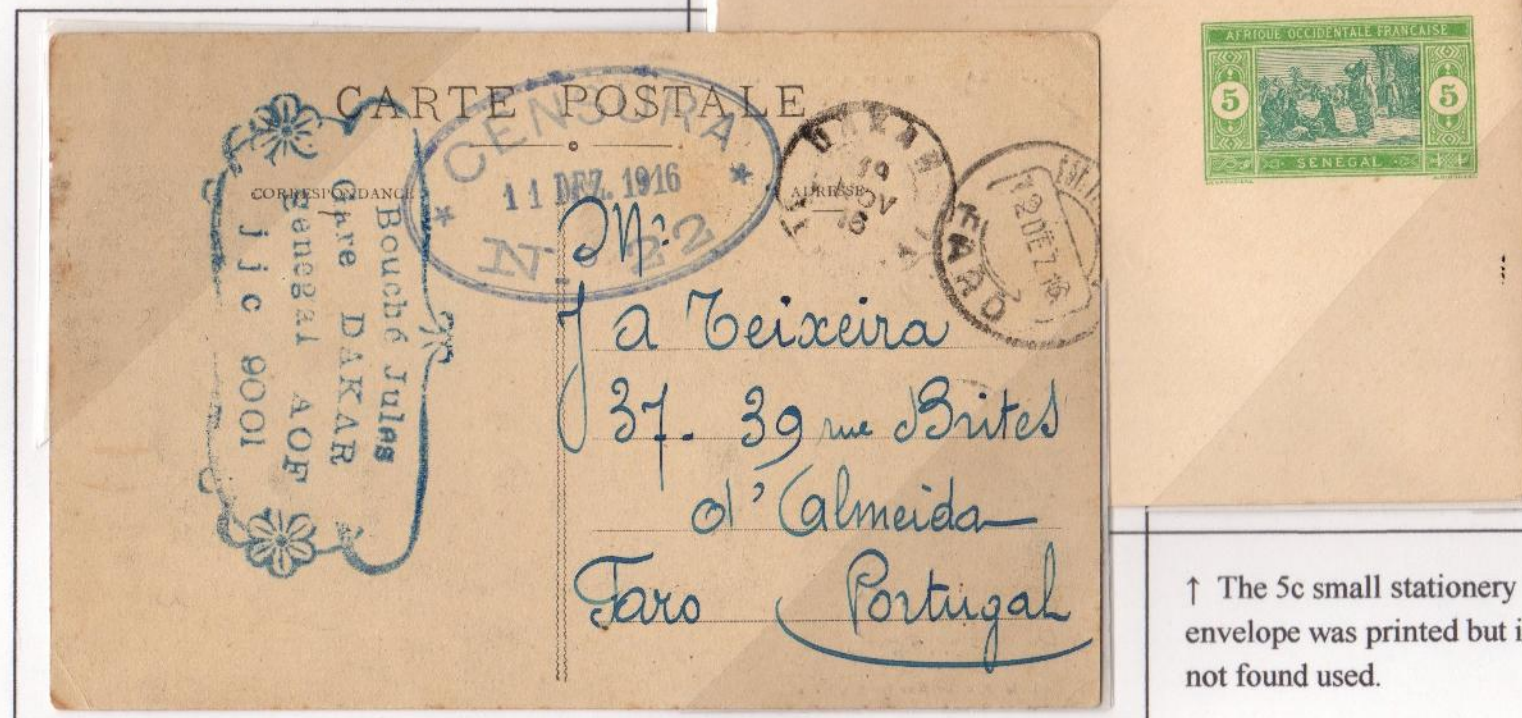 CARTE POSTALE
CORRESPONDANCE
ADRESSE
CENSURA
11 DEZ. 1916
N. 22
Bouché Jules
Gare DAKAR
Senegal AOF
jjc 9001
DAKAR
19
NOV
16
FARO
12 DEZ 16
Mr
J a Teixeira
37. 39 rue Brites
d'Almeida
Faro Portugal
AFRIQUE OCCIDENTALE FRANÇAISE
5 5
SENÉGAL
↑ The 5c small stationery
envelope was printed but i
not found used.